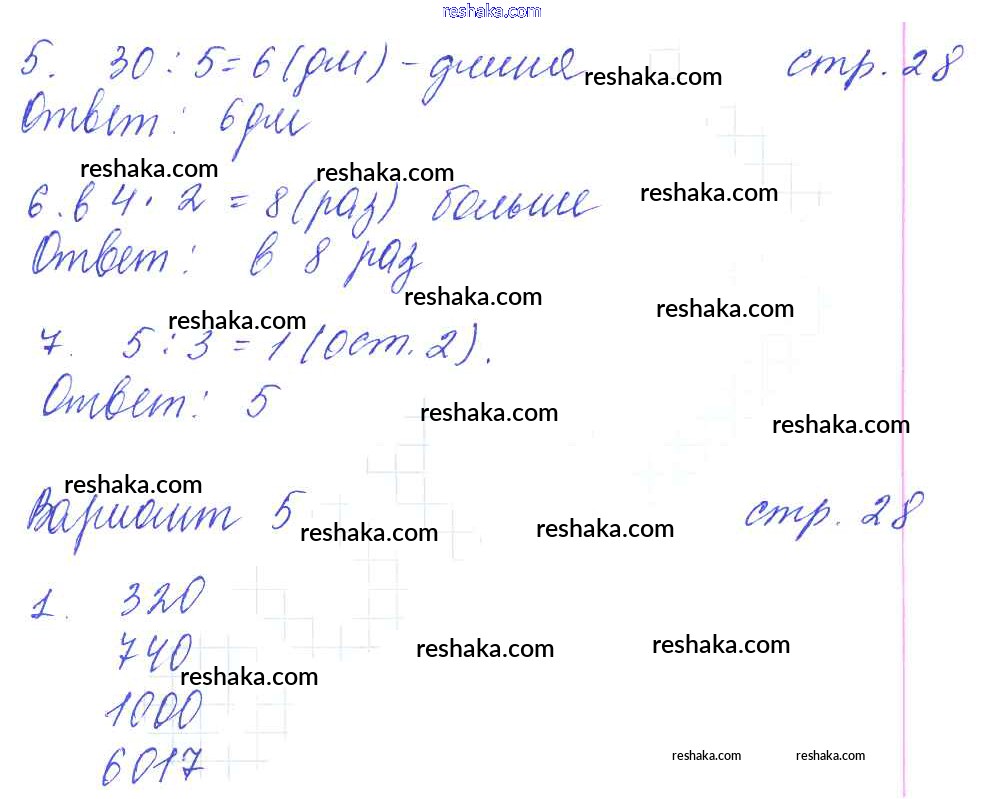 reshaka.com
5. 30 : 5 = 6 (дм) - длина reshaka.com стр. 28
Ответ: 6 дм
reshaka.com reshaka.com reshaka.com
6. в 4 · 2 = 8 (раз) больше
Ответ: в 8 раз
reshaka.com reshaka.com
reshaka.com
7. 5 : 3 = 1 (ост. 2).
Ответ: 5
reshaka.com reshaka.com
reshaka.com
Вариант 5 reshaka.com reshaka.com стр. 28
1. 320
740
reshaka.com reshaka.com reshaka.com
1000
6017
reshaka.com reshaka.com